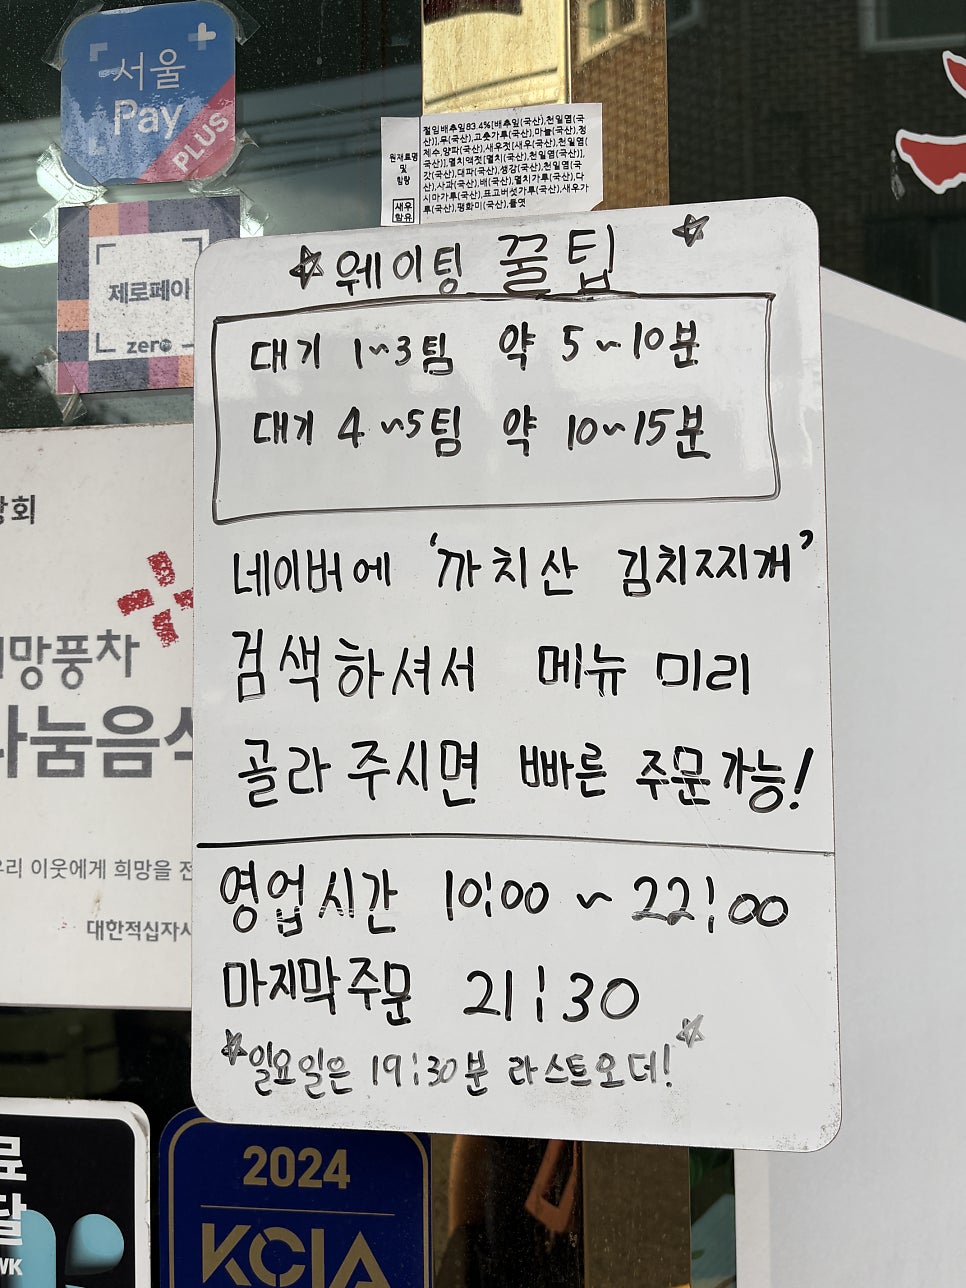 서울
Pay
PLUS
제로페이
zero
원재료명
및
함량
새우
함유
절임배추잎83.4%[배추잎(국산),천일염(국
산)],무(국산),고춧가루(국산),마늘(국산),정
제수,양파(국산),새우젓[새우(국산),천일염(
국산)],멸치액젓[멸치(국산),천일염(국산)],
갓(국산),대파(국산),생강(국산),천일염(국
산),사과(국산),배(국산),멸치가루(국산),다
시마가루(국산),표고버섯가루(국산),새우가
루(국산),평화미(국산),물엿
웨이팅 꿀팁
대기 1~3팀 약 5~10분
대기 4~5팀 약 10~15분
네이버에 '까치산 김치찌개'
검색하셔서 메뉴 미리
골라 주시면 빠른 주문가능!
영업시간 10:00 ~ 22:00
마지막주문 21:30
일요일은 19:30분 라스트오더!
망풍차
나눔음식
우리 이웃에게 희망을 전
대한적십자사
2024
KCIA